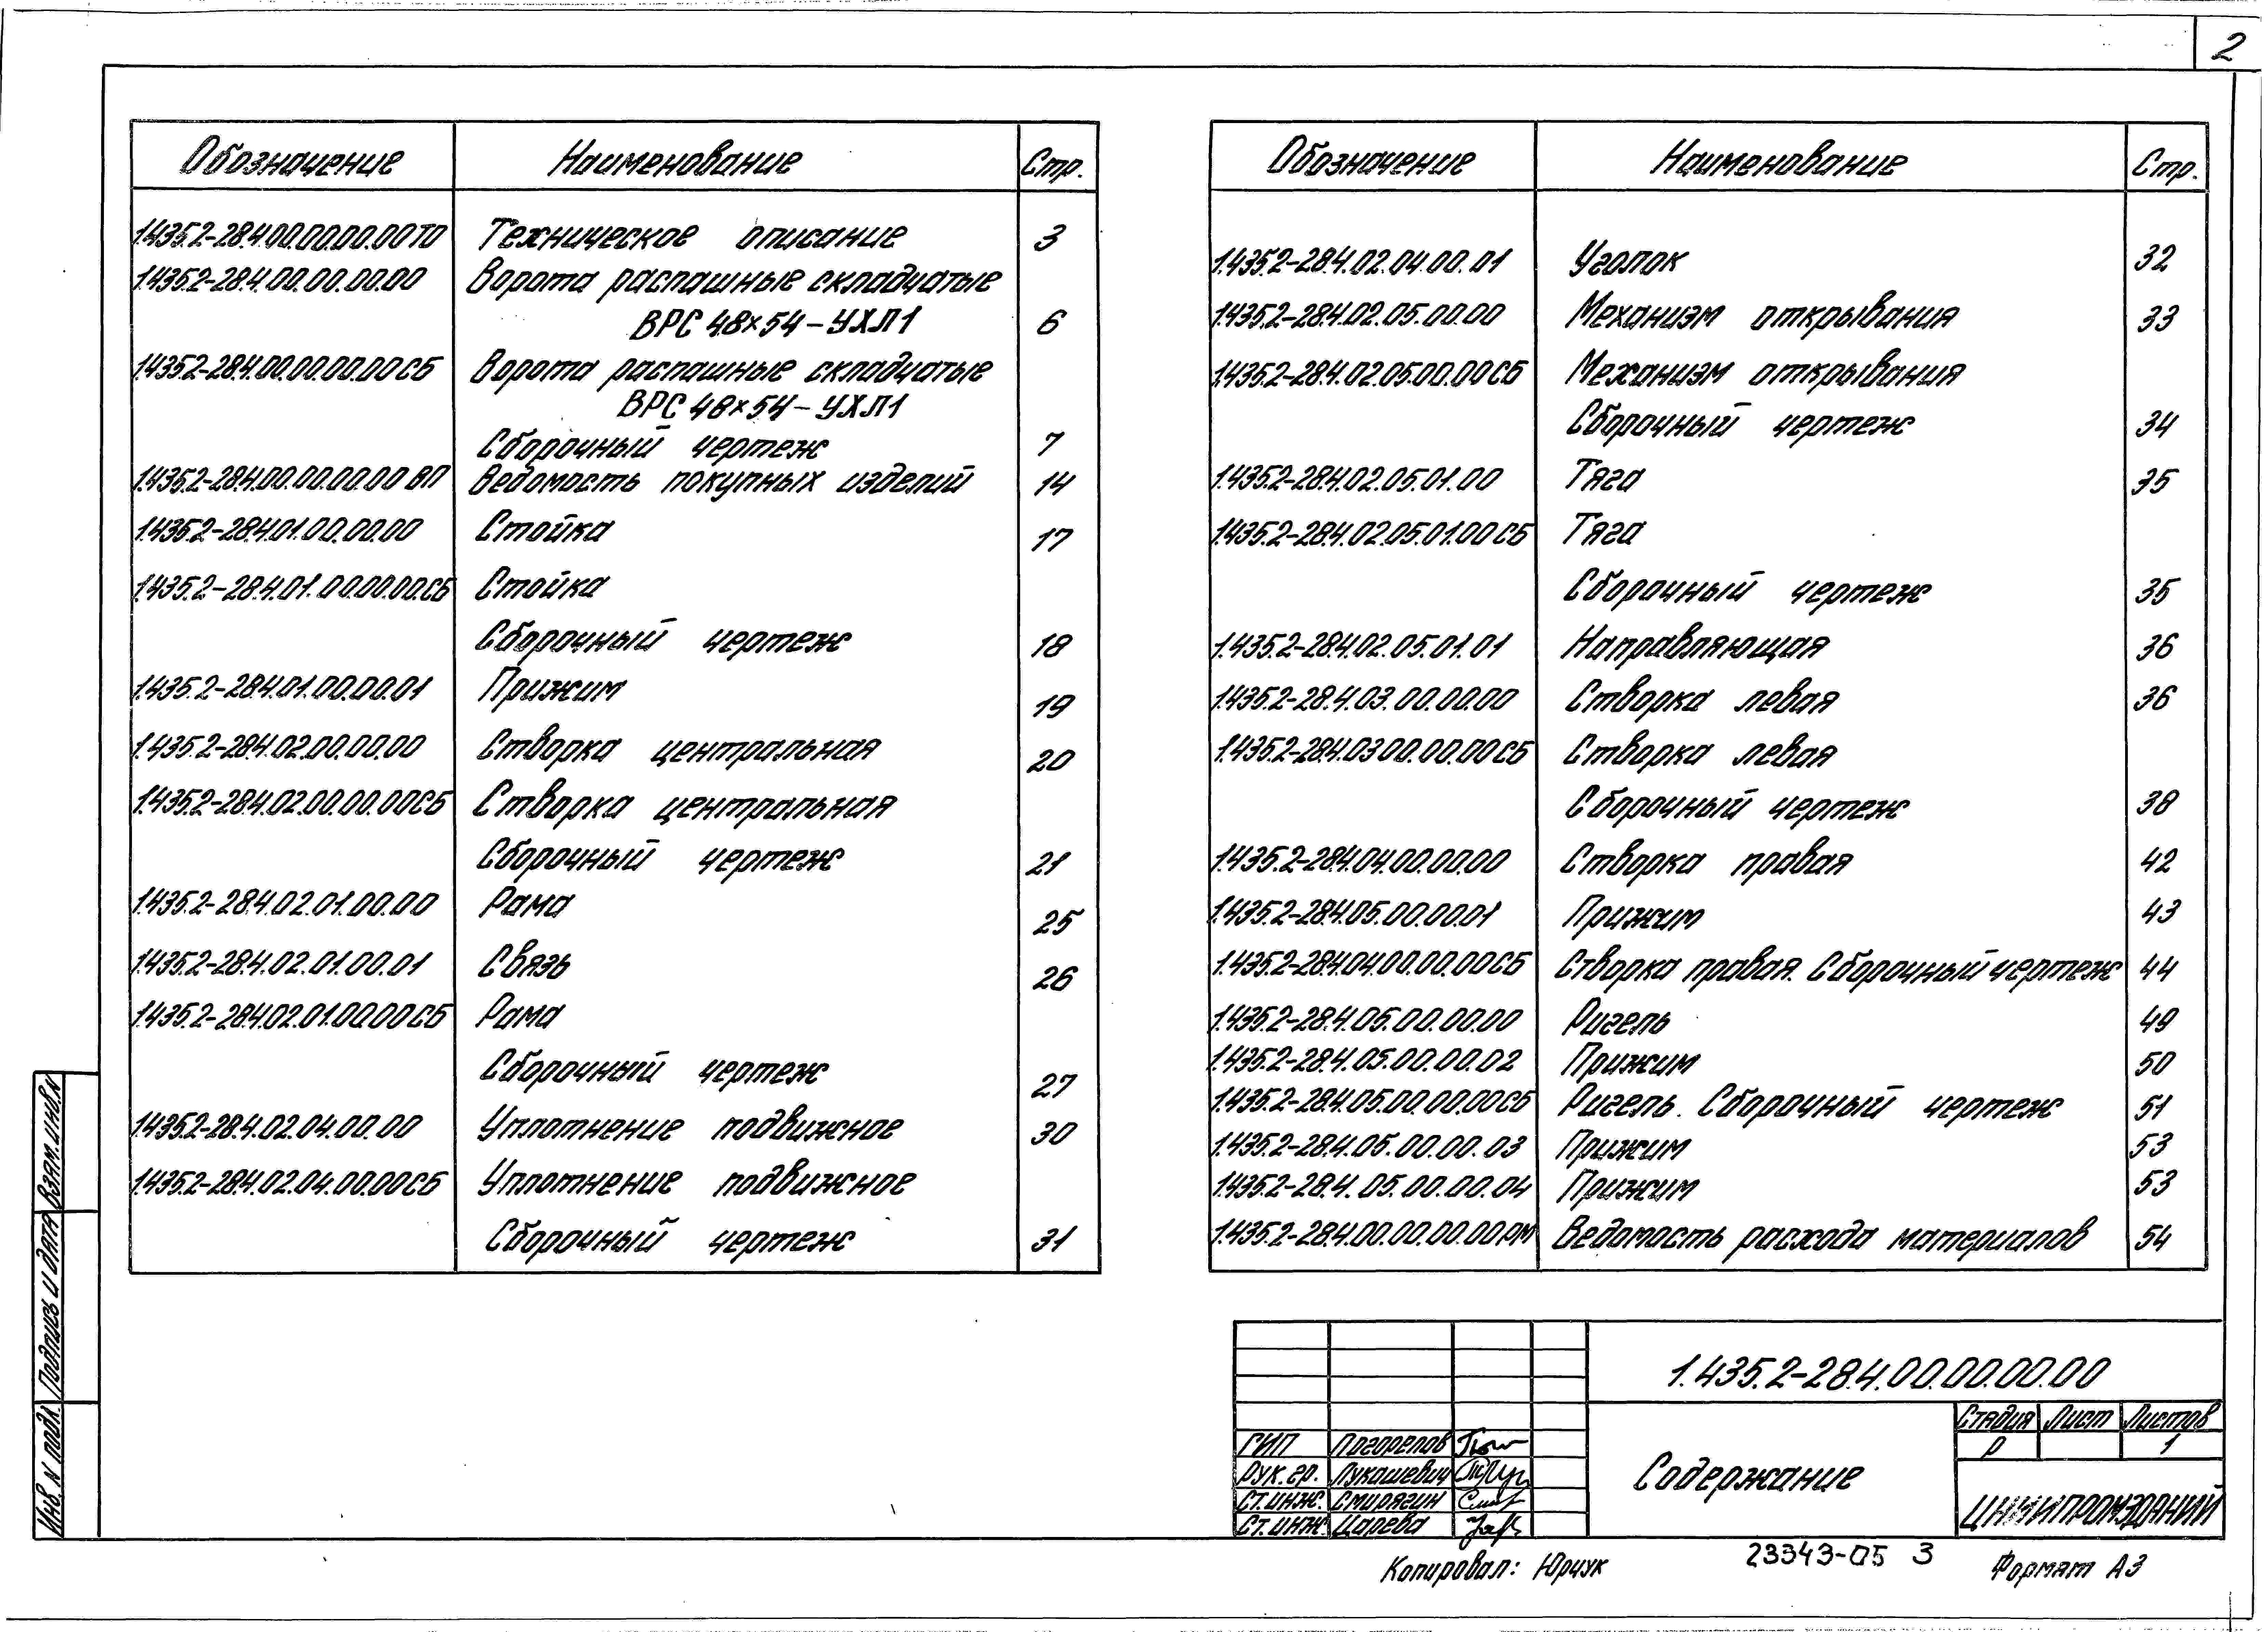 2
Обозначение Наименование Стр.
1.435.2-28.4.00.00.00.00ТО Техническое описание 3
1.435.2-28.4.00.00.00.00 Ворота распашные складчатые
ВРС 48×54-УХЛ1 6
1.435.2-28.4.00.00.00.00СБ Ворота распашные складчатые
ВРС 48×54-УХЛ1
Сборочный чертеж 7
1.435.2-28.4.00.00.00.00 ВП Ведомость покупных изделий 14
1.435.2-28.4.01.00.00.00 Стойка 17
1.435.2-28.4.01.00.00.00.СБ Стойка
Сборочный чертеж 18
1.435.2-28.4.01.00.00.01 Прижим 19
1.435.2-28.4.02.00.00.00 Створка центральная 20
1.435.2-28.4.02.00.00.00СБ Створка центральная
Сборочный чертеж 21
1.435.2-28.4.02.01.00.00 Рама 25
1.435.2-28.4.02.01.00.01 Связь 26
1.435.2-28.4.02.01.00.00СБ Рама
Сборочный чертеж 27
1.435.2-28.4.02.04.00.00 Уплотнение подвижное 30
1.435.2-28.4.02.04.00.00СБ Уплотнение подвижное
Сборочный чертеж 31
Обозначение Наименование Стр.
1.435.2-28.4.02.04.00.01 Уголок 32
1.435.2-28.4.02.05.00.00 Механизм открывания 33
1.435.2-28.4.02.05.00.00СБ Механизм открывания
Сборочный чертеж 34
1.435.2-28.4.02.05.01.00 Тяга 35
1.435.2-28.4.02.05.01.00СБ Тяга
Сборочный чертеж 35
1.435.2-28.4.02.05.01.01 Направляющая 36
1.435.2-28.4.03.00.00.00 Створка левая 36
1.435.2-28.4.03 00.00.00СБ Створка левая
Сборочный чертеж 38
1.435.2-28.4.04.00.00.00 Створка правая 42
1.435.2-28.4.05.00.00.01 Прижим 43
1.435.2-28.4.04.00.00.00СБ Створка правая. Сборочный чертеж 44
1.435.2-28.4.05.00.00.00 Ригель 49
1.435.2-28.4.05.00.00.02 Прижим 50
1.435.2-28.4.05.00.00.00СБ Ригель. Сборочный чертеж 51
1.435.2-28.4.05.00.00.03 Прижим 53
1.435.2-28.4.05.00.00.04 Прижим 53
1.435.2-28.4.00.00.00.00РМ Ведомость расхода материалов 54
Взам.инв.N
Подпись и дата
Инв. N подл.
1.435.2-28.4.00.00.00.00
Стадия Лист Листов
Р 1
ГИП Погорелов
Рук.гр. Лукашевич
Ст.инж. Смирягин
Ст.инж Царева
Содержание
ЦНИИПРОМЗДАНИЙ
Копировал: Юрчук 23343-05 3 Формат А3